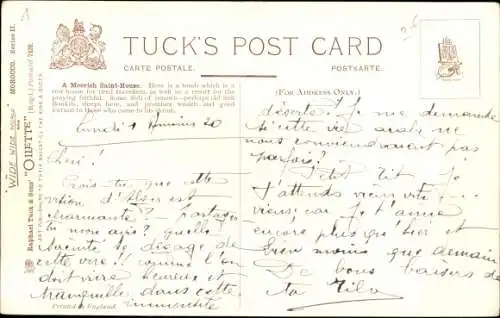 1
TUCK'S POST CARD
CARTE POSTALE.
POSTKARTE.
(FOR ADDRESS ONLY.)
A Moorish Saint-House. Here is a tomb which is a
rest house for tired travellers, as well as a resort for the
praying faithful. Some
fortune to those who come to his shrine.
Raphael Tuck & Sons' "OILETTE" [Regd.] Postcard 7429.
ART PUBLISHERS TO THEIR MAJESTIES THE KING & QUEEN.
"WIDE WIDE WORLD" MOROCCO. Series II.
Printed in England.
Lundi 1 20
Chéri !
Crois-tu que cette
vision d'Alger est
charmante ? - partages
tu mon avis ? Quelle
de
cette vie !! comme l'on
doit vivre heureux et
tranquille dans cette
immensité
déserte ! Je me demande
si cette vie arabe ne
nous conviendrait pas
parfois ?
Petot lit Je
t'attends viens vite
viens, car je t'aime
encore plus qu'hier et
bien moins que demain
De bons baisers de
ta